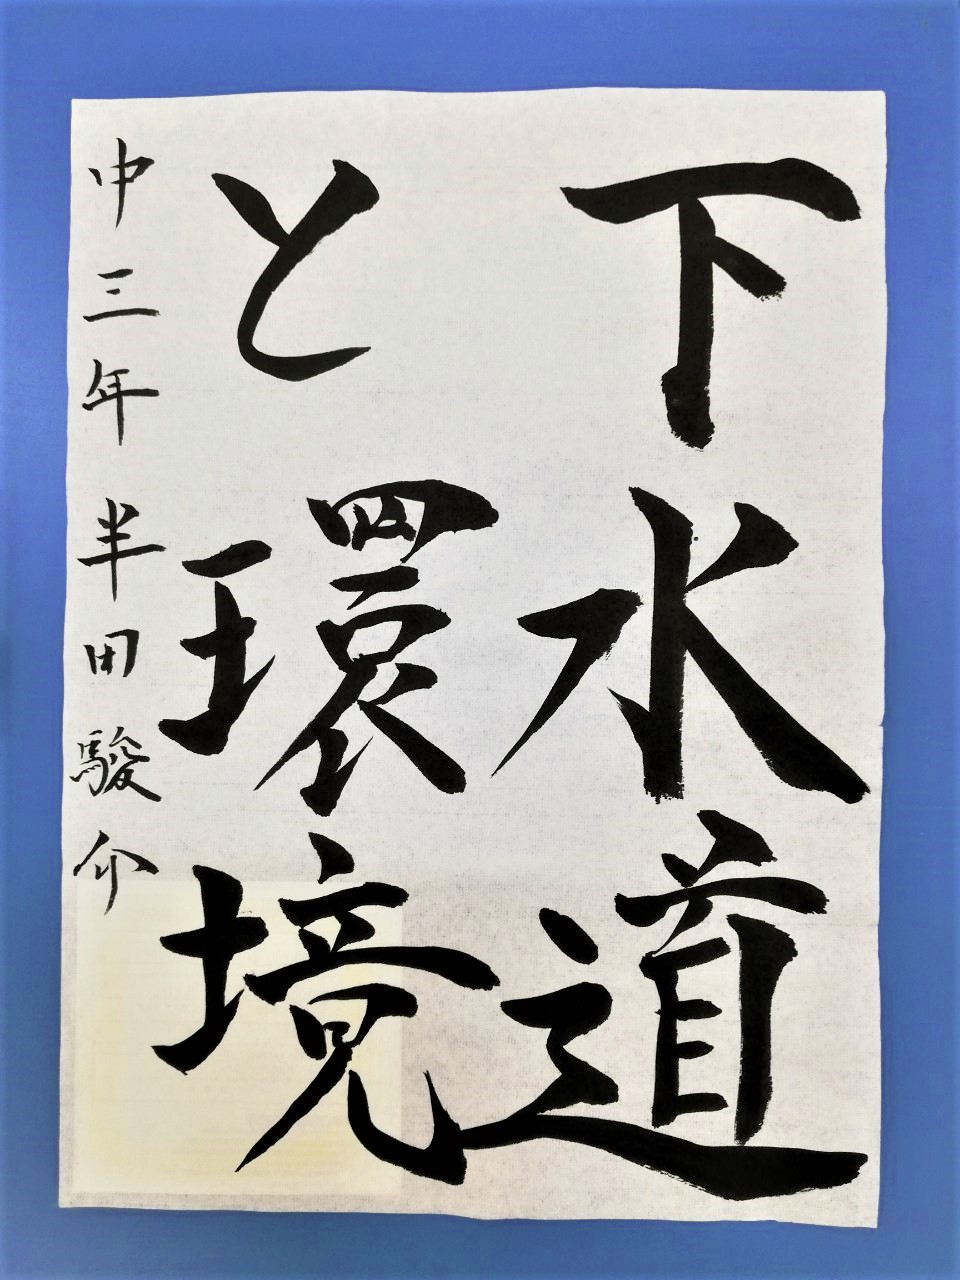 下水道
と環境
中三年 半田駿介